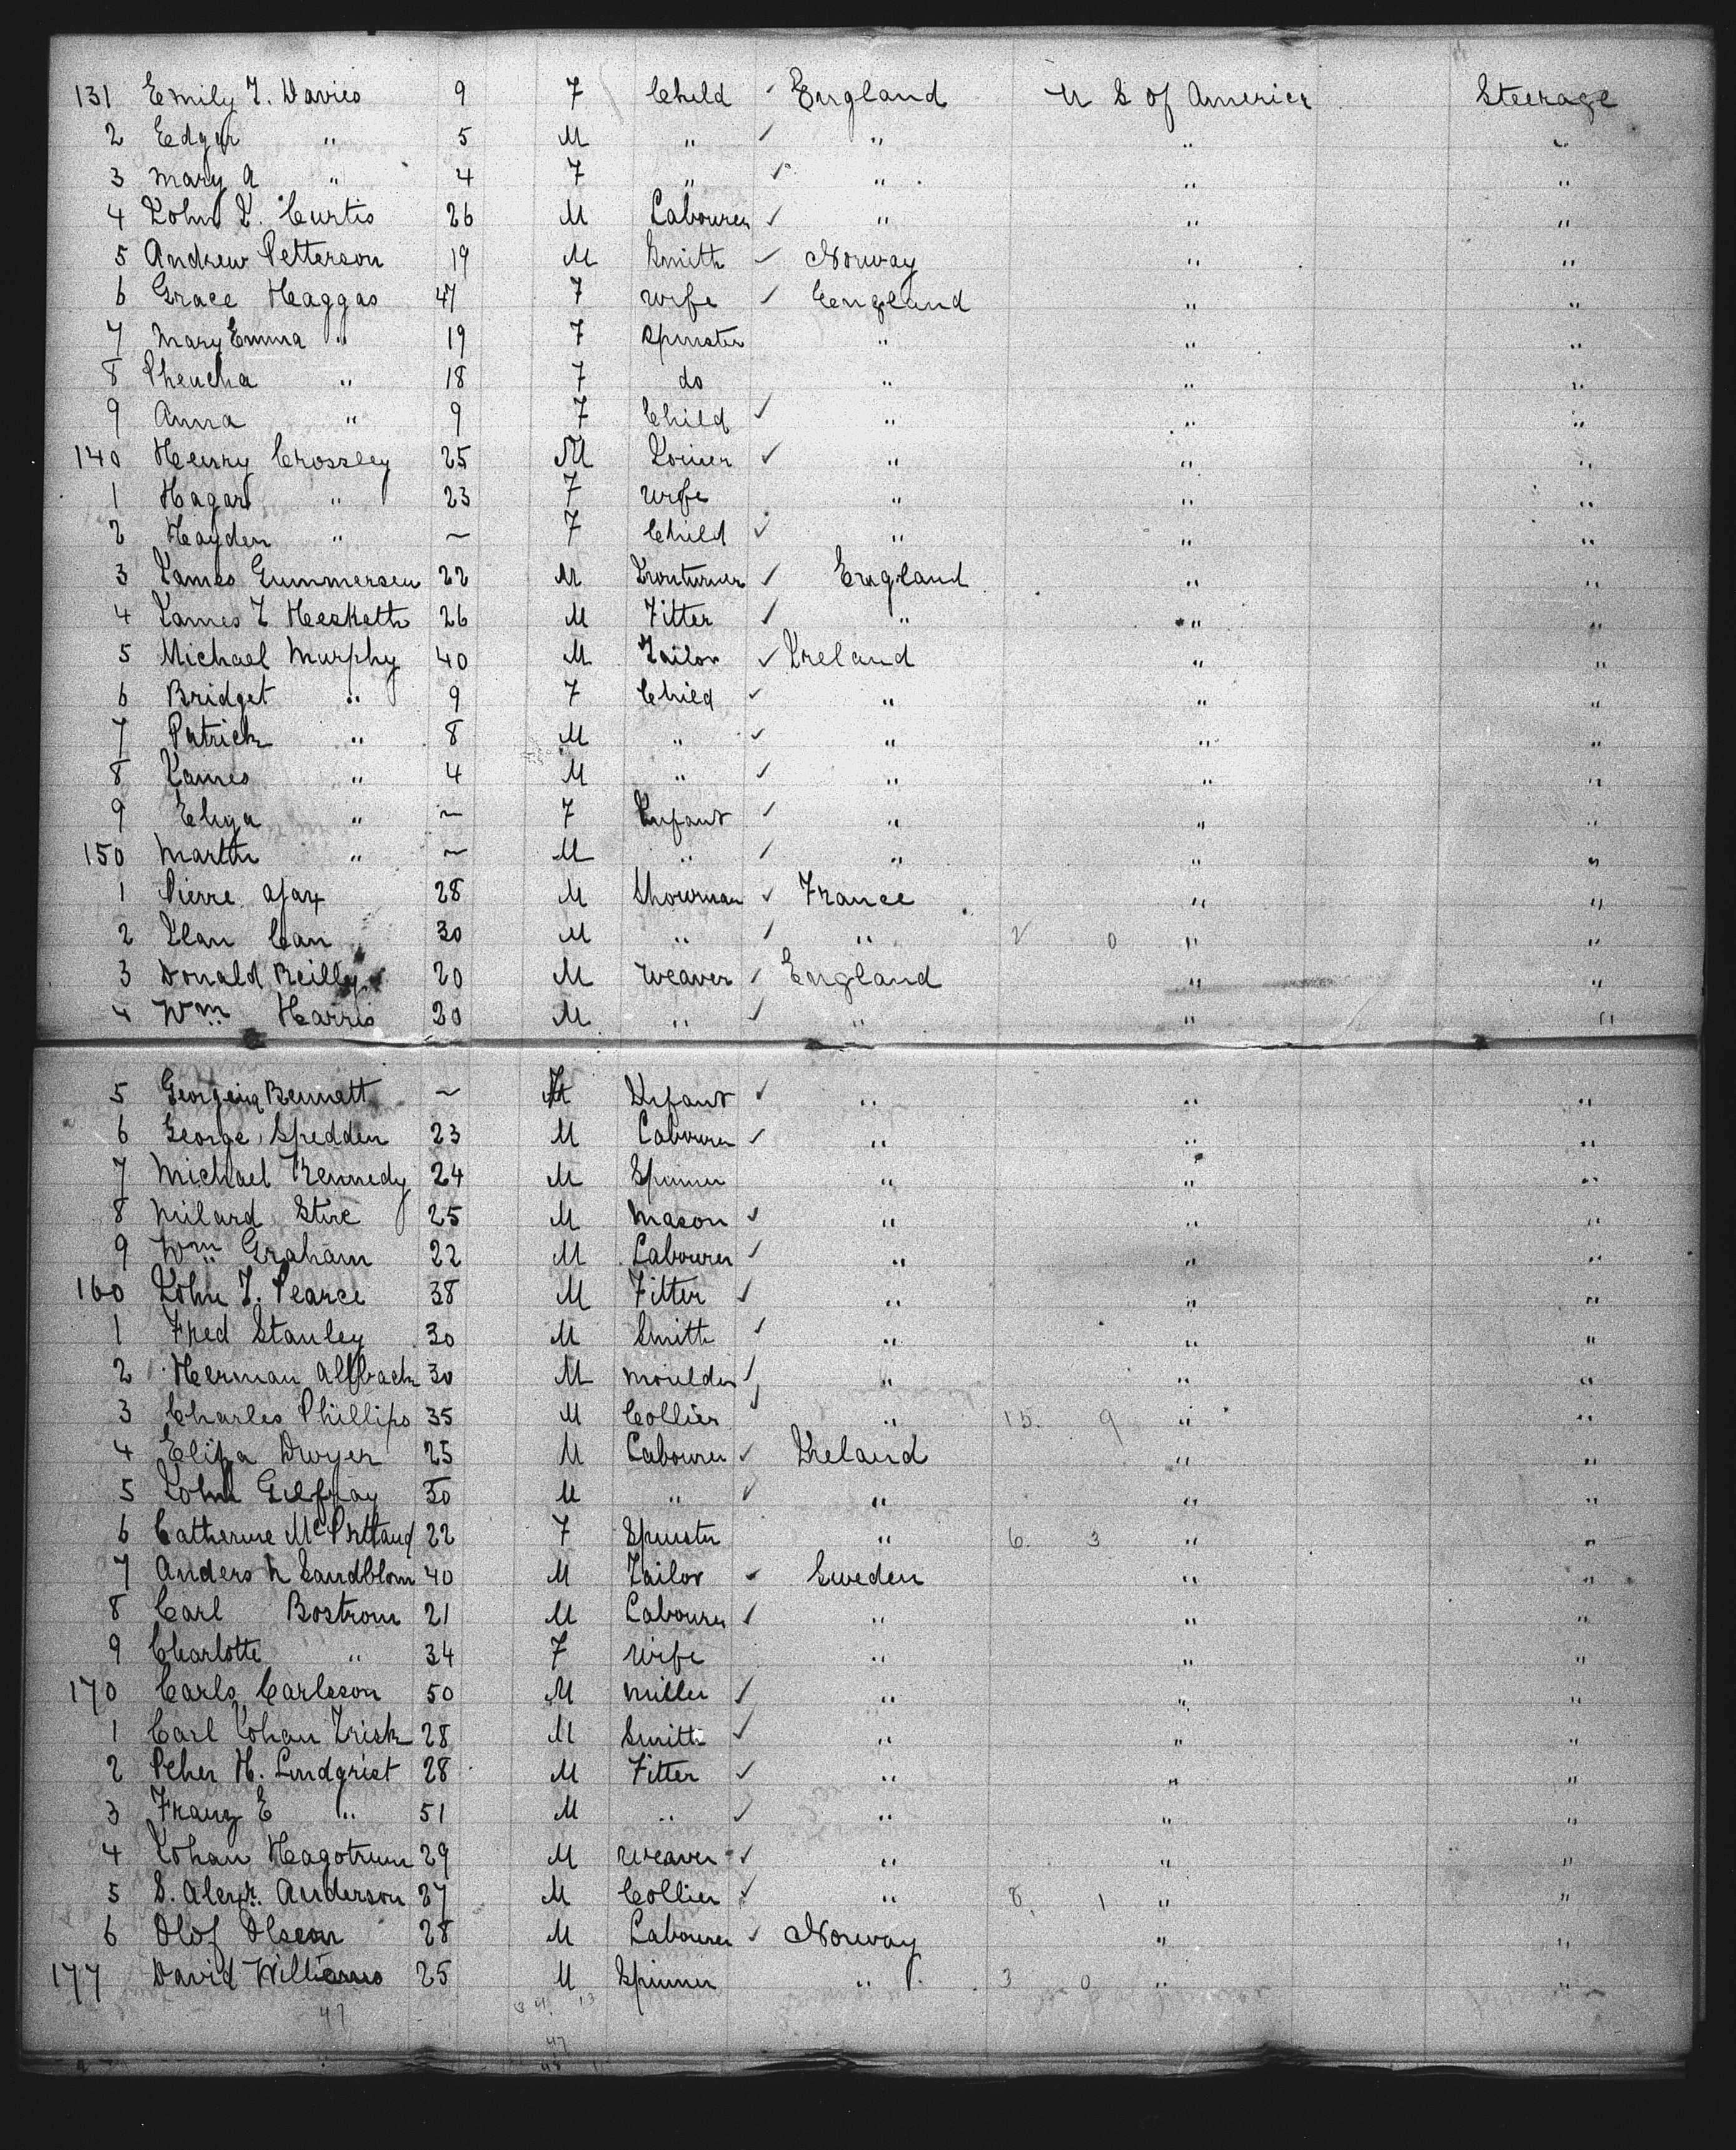 131 Emily F. Davies 9 F Child ✓ England U S of America Steerage
2 Edgar " 5 M " ✓ " " "
3 Mary A " 4 F " ✓ " " "
4 John J. Curtis 26 M Labourer ✓ " " "
5 Andrew Petterson 19 M Smith ✓ Norway " "
6 Grace Heaggas 47 F Wife ✓ England " "
7 Mary Emma " 19 F Spinster " " "
8 " 18 F do " " "
9 Anna " 9 F Child ✓ " " "
140 Henry Crossley 25 M Joiner ✓ " " "
1 Hagar " 23 F Wife " " "
2 Hayden " ~ F Child ✓ " " "
3 James Gummersen 22 M Ironturner ✓ England " "
4 James T Hesketh 26 M Fitter ✓ " " "
5 Michael Murphy 40 M Tailor ✓ Ireland " "
6 Bridget " 9 F Child ✓ " " "
7 Patrick " 8 M " ✓ " " "
8 James " 4 M " ✓ " " "
9 Eliza " ~ F Infant ✓ " " "
150 Martin " ~ M " ✓ " " "
1 Pierre Ajax 28 M Showman ✓ France " "
2 Jean 30 M " ✓ " 2 0 " "
3 Donald Reilly 20 M Weaver ✓ England " "
4 Wm Harris 20 M " ✓ " " "
5 Georgina Bennett ~ Infant ✓ " " "
6 George Spedden 23 M Labourer ✓ " " "
7 Michael Kennedy 24 M Spinner " " "
8 Milard Stire 25 M Mason ✓ " " "
9 Wm Graham 22 M Labourer ✓ " " "
160 John T. Pearce 38 M Fitter ✓ " " "
1 Fred Stanley 30 M Smith ✓ " " "
2 Herman Allbach 30 M Moulder ✓ " " "
3 Charles Phillips 35 M Collier ✓ " 15. 9 " "
4 Eliza Dwyer 25 M Labourer ✓ Ireland " "
5 John 30 M " ✓ " " "
6 Catherine 22 F Spinster " 6. 3 " "
7 Anders N Sandblom 40 M Tailor ✓ Sweden " "
8 Carl Bostrom 21 M Labourer ✓ " " "
9 Charlotte " 34 F Wife " " "
170 Carls Carlsson 50 M Miller ✓ " " "
1 Carl Johan Frisk 28 M Smith ✓ " " "
2 Peher H. Lindqrist 28 M Fitter ✓ " " "
3 Franz E " 51 M " ✓ " " "
4 Johan Hagotrum 29 M Weaver ✓ " " "
5 S. Alexr. Anderson 27 M Collier ✓ " 8. 1 " "
6 Olof Olseon 28 M Labourer ✓ Norway " "
177 David Williams 25 M Spinner " 3 0 " "
47 13
47